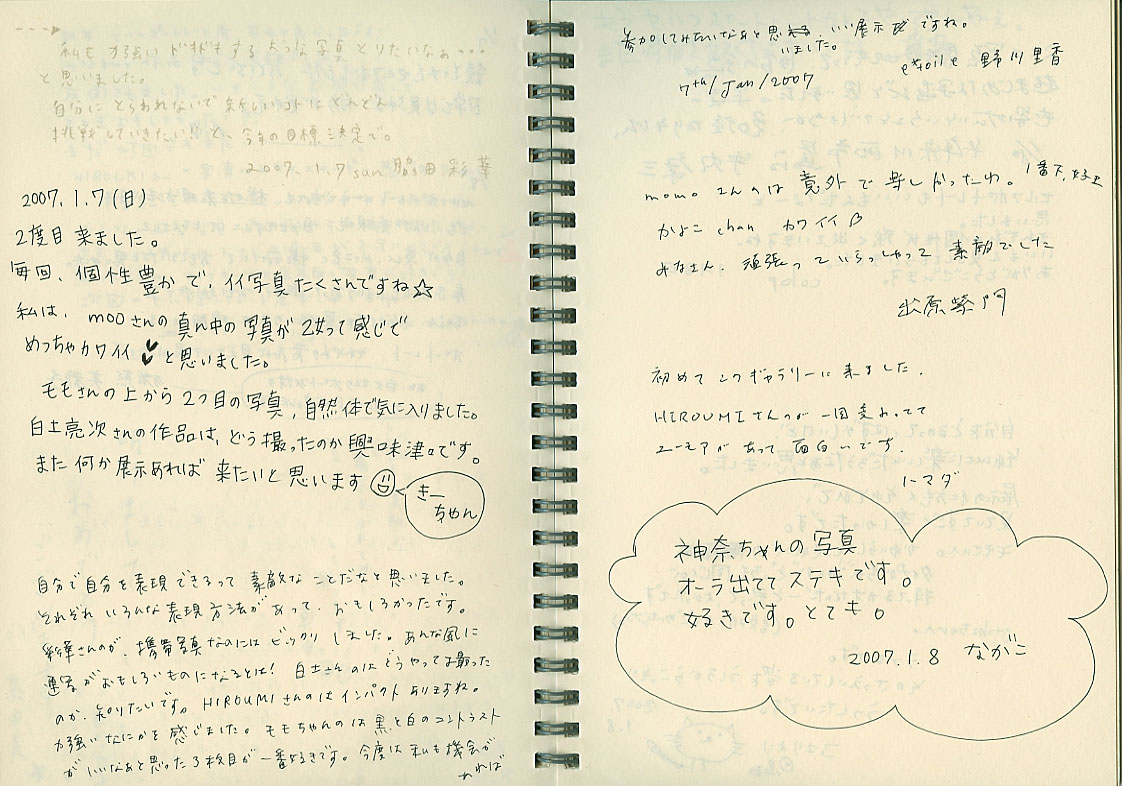 私も力強いドキドキする大うな写真とりたいなぁ...
と思いました。
自分にとらわれないで新しいコトにどんどん
挑戦していきたい!!と、今年の目標決定で。
2007.1.7 sun 脇田彩華
2007.1.7(日)
2度目来ました。
毎回、個性豊かで、イイ写真たくさんですね☆
私は、mooさんの真ん中の写真が乙女って感じで
めっちゃカワイイ と思いました。
モモさんの上から2つ目の写真、自然体で気に入りました。
白土亮次さんの作品は、どう撮ったのか興味津々です。
また何か展示あれば来たいと思います
きーちゃん
自分で自分を表現できるって素敵なことだなと思いました。
それぞれいろんな表現方法があって、おもしろかったです。
さんのが、携帯写真なのにはビックリしました。あんな風に
連写がおもしろいものになるとは! 白土さんのはどうやって撮った
のか、知りたいです。HIROUMIさんのはインパクトありますね。
力強いなにかを感じました。モモちゃんのは黒と白のコントラスト
がいいなぁと思った3枚目が一番好きです。今度は私も機会が
あれば
参加してみたいなぁと思いました。いい展示ですね。
etoile 野川里香
7th/Jan/2007
momoさんのは意外で楽しかったわ。1番下、好き
かよこchan カワイイ
みなさん、頑張っていらっしゃって素敵でした
出原紫門
初めてこのギャラリーに来ました.
HIROUMIさんのが一回変わってて
ユーモアがあって面白いです
トマダ
神奈ちゃんの写真
オーラ出ててステキです。
好きです。とても。
2007.1.8 ながこ